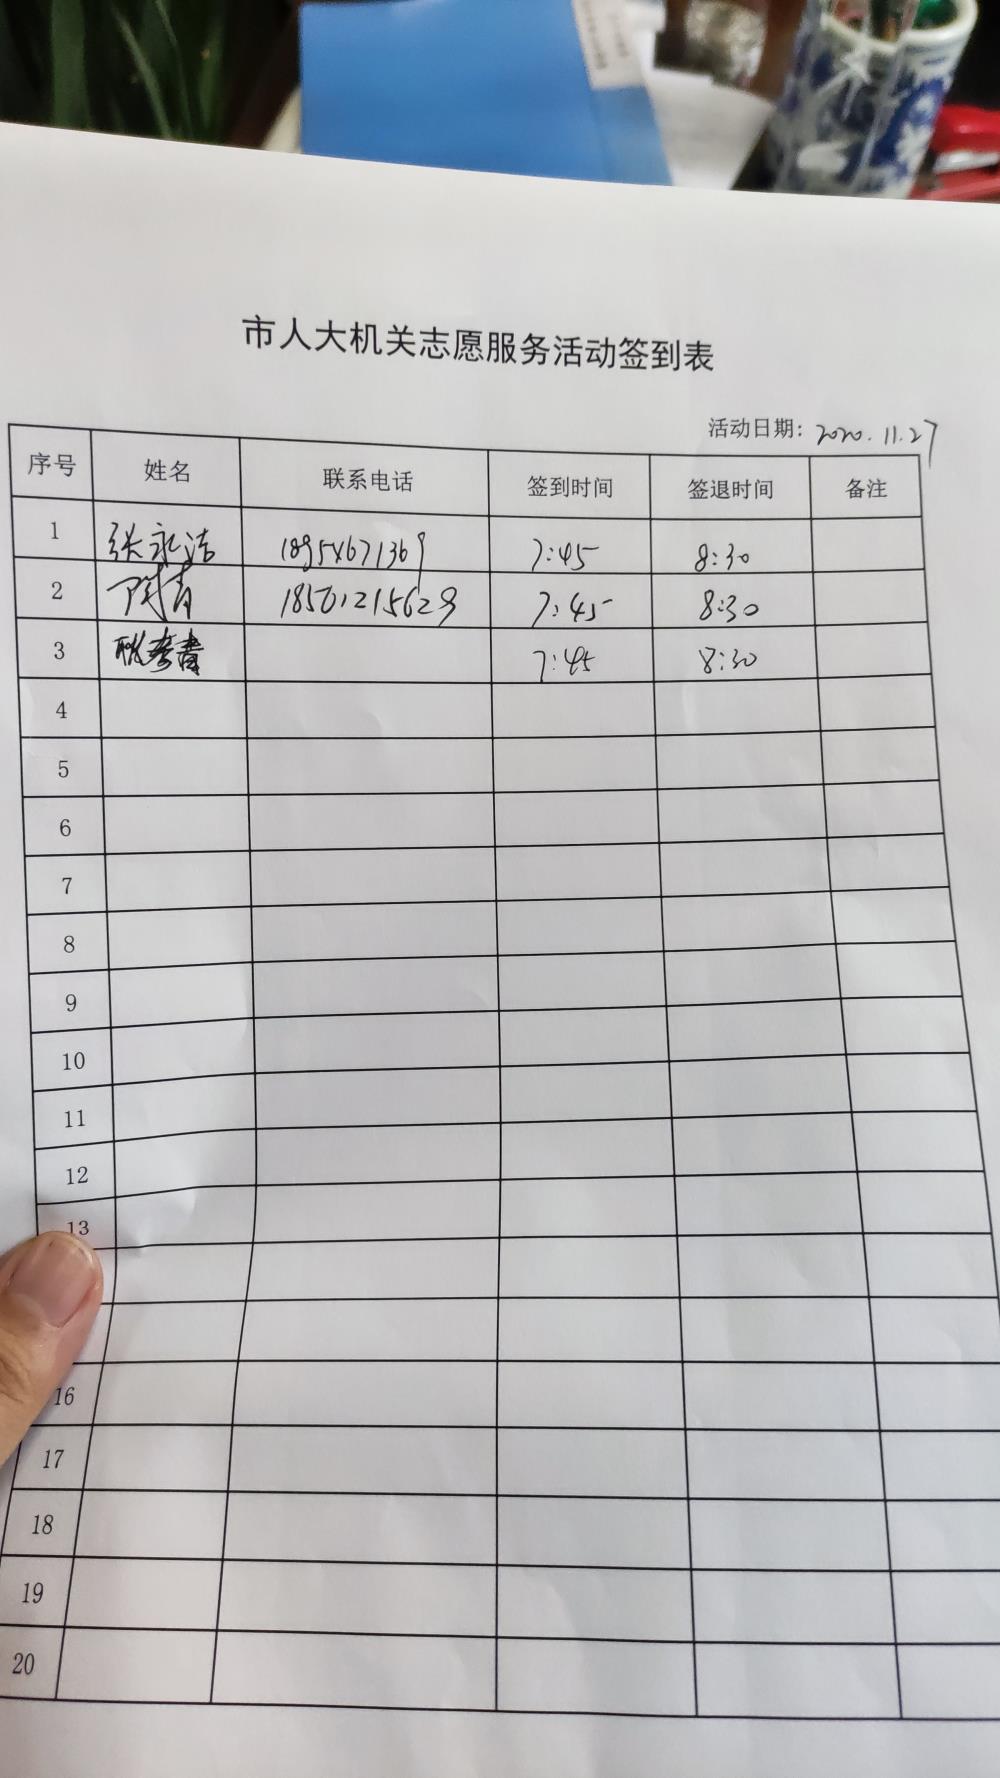 市人大机关志愿服务活动签到表
活动日期: 2020.11.27
序号 姓名 联系电话 签到时间 签退时间 备注
1 张永洁 18954671369 7:45 8:30
2 青 18501215629 7:45 8:30
3 7:45 8:30
4
5
6
7
8
9
10
11
12
13
16
17
18
19
20